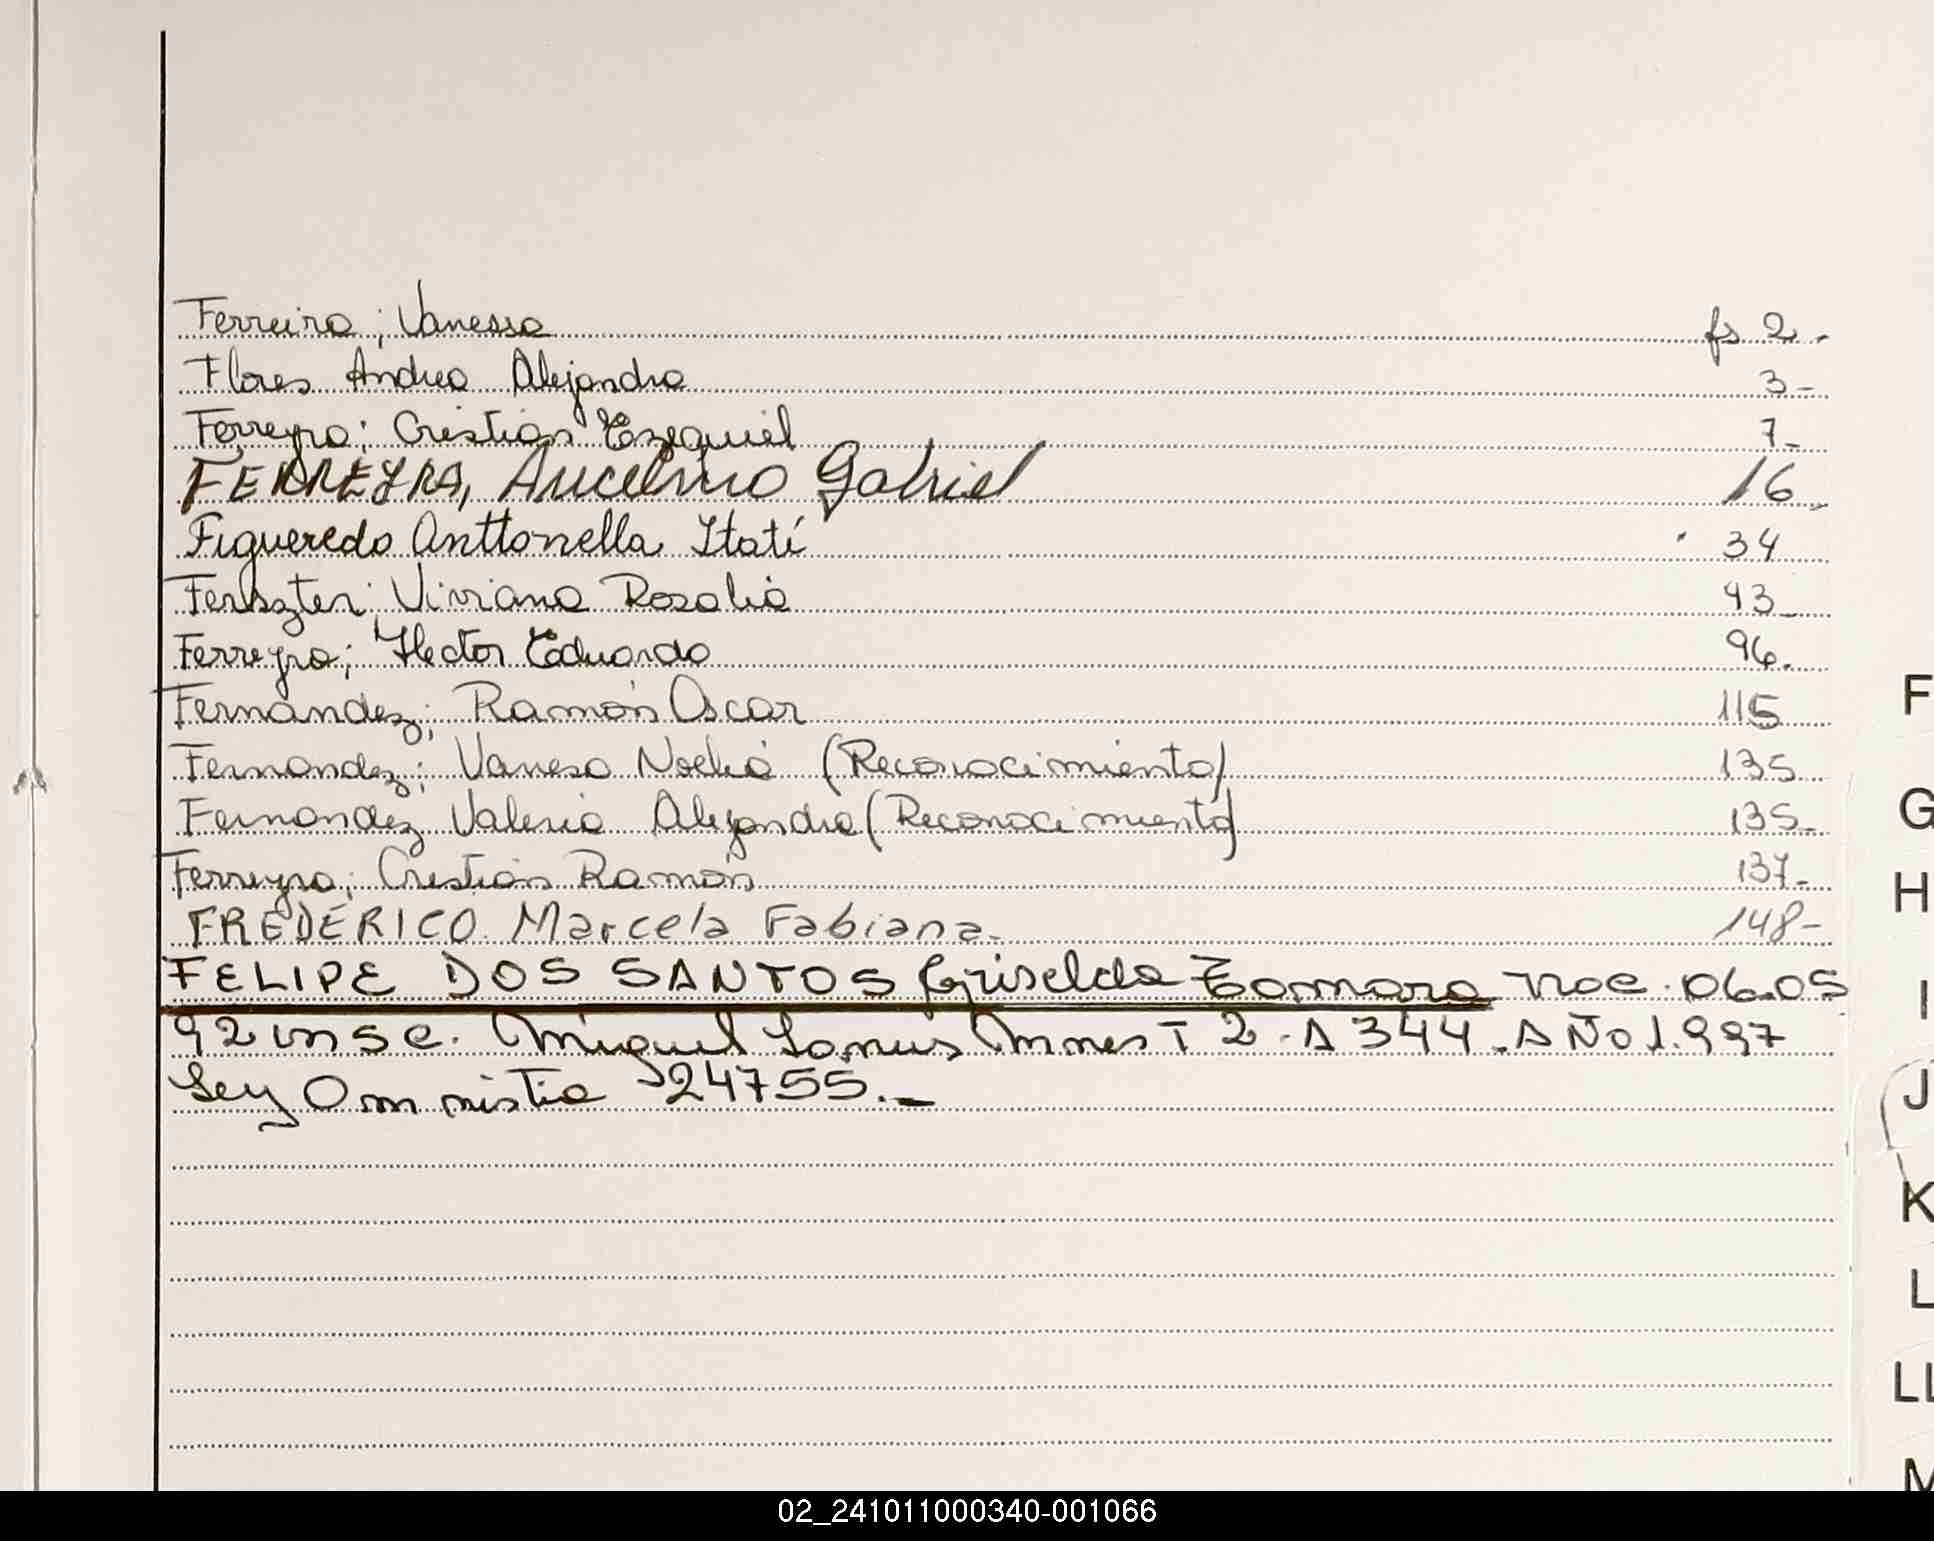 Ferreira; Vanessa fs 2.
Flores Andrea Alejandra 3-
Ferreyra; Cristian Ezequiel 7-
FERREYRA, Ancelmo Gabriel 16
Figueredo Anttonella Itatí 34
Ferszter; Viviana Rosalia 93-
Ferreyra; Hector Eduardo 96.
Fernández; Ramón Oscar 115
Fernandez; Vanesa Noelia (Reconocimiento) 135
Fernandez Valeria Alejandra (Reconocimiento) 135-
Ferreyra; Cristian Ramón 137-
FREDERICO Marcela Fabiana. 148-
FELIPE DOS SANTOS Griselda Tamara nac. 06.05
92 insc. Miguel T 2. A 344. AÑO 1.997
Ley Amnistia 24755.-
F
G
H
I
J
K
L
LL
M
02_241011000340-001066